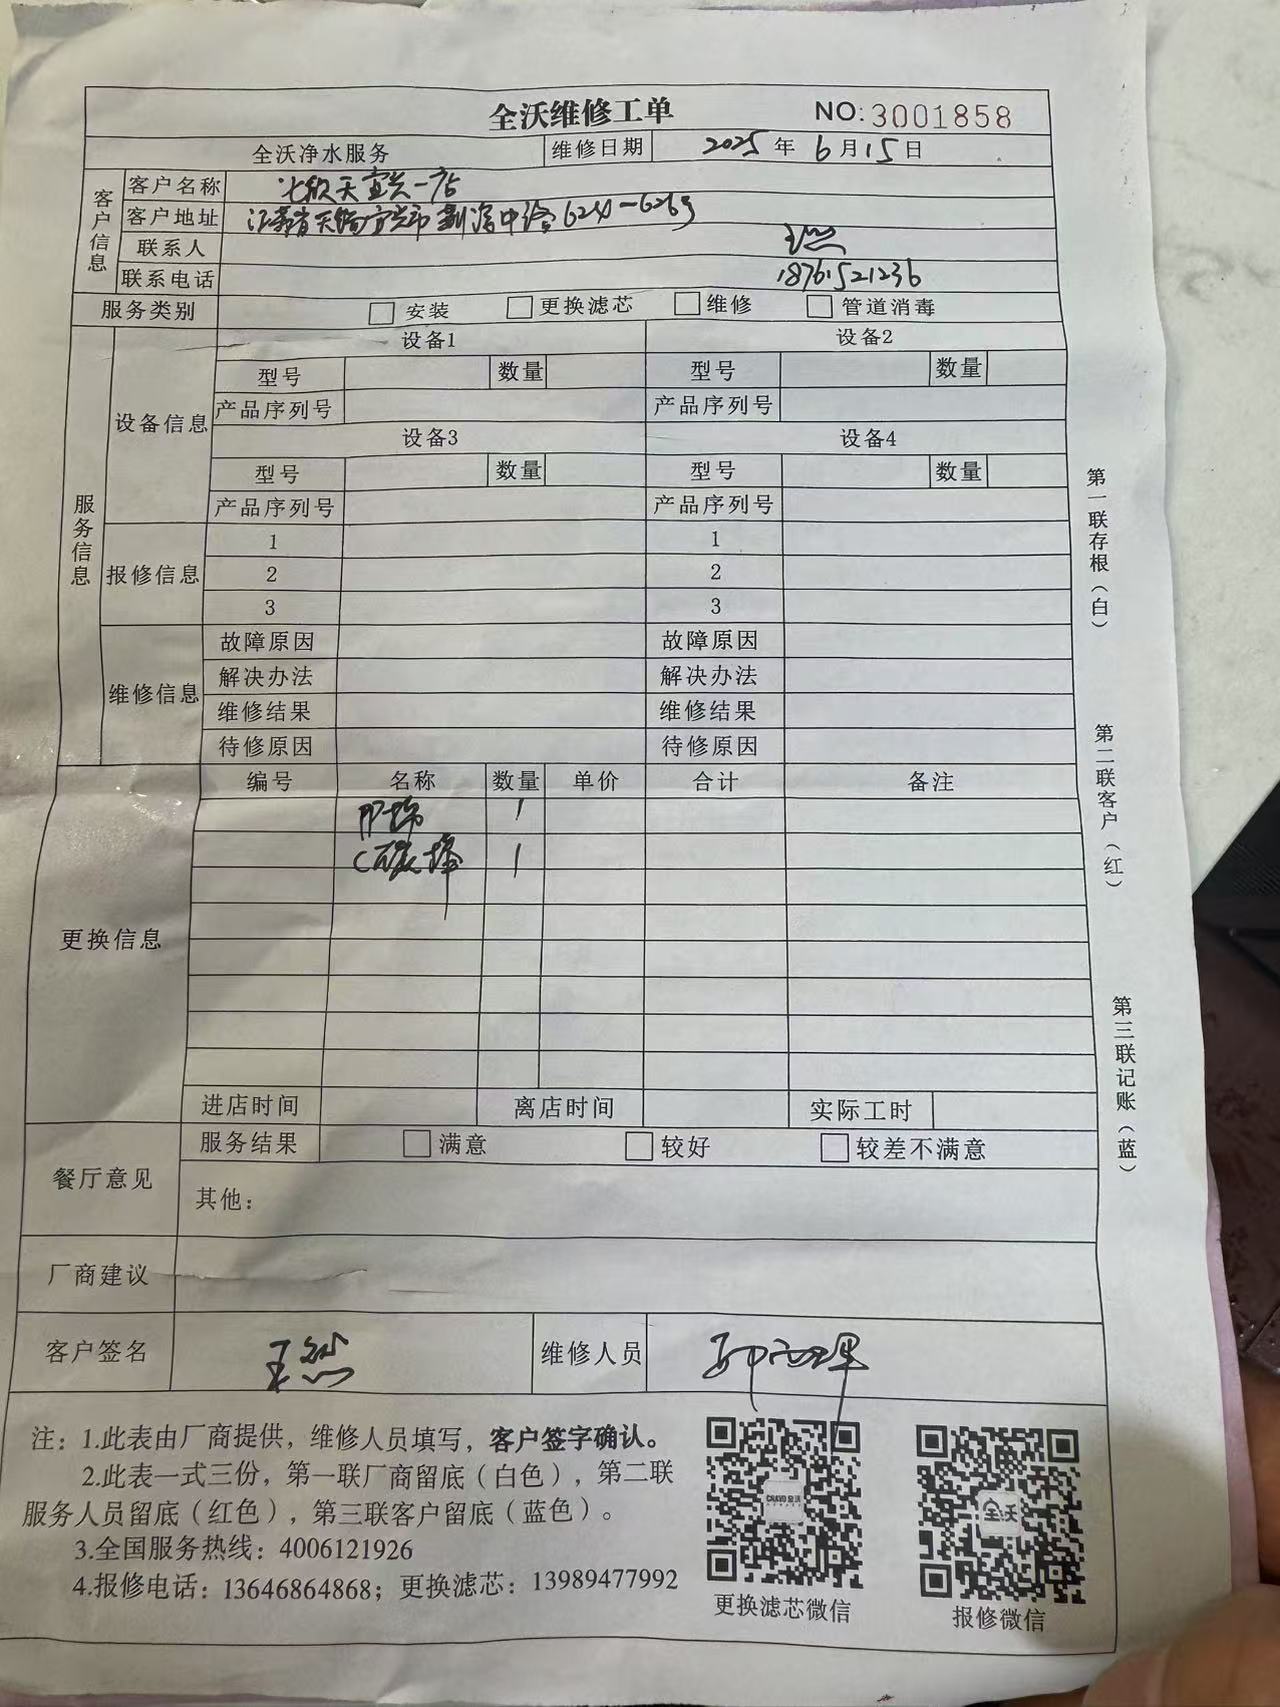 全沃维修工单 NO:3001858
全沃净水服务 维修日期 2025年6月15日
客户信息
客户名称 七欣天宜兴一店
客户地址 江苏省无锡宜兴市 中 624-626号
联系人 王然
联系电话 18761521236
服务类别 安装 更换滤芯 维修 管道消毒
服务信息
设备信息
设备1 设备2
型号 数量 型号 数量
产品序列号 产品序列号
设备3 设备4
型号 数量 型号 数量
产品序列号 产品序列号
报修信息
1 1
2 2
3 3
维修信息
故障原因 故障原因
解决办法 解决办法
维修结果 维修结果
待修原因 待修原因
更换信息
编号 名称 数量 单价 合计 备注
PP棉 1
C碳棒 1
进店时间 离店时间 实际工时
餐厅意见
服务结果 满意 较好 较差不满意
其他：
厂商建议
客户签名 王然 维修人员
注：1.此表由厂商提供，维修人员填写，客户签字确认。
2.此表一式三份，第一联厂商留底（白色），第二联
服务人员留底（红色），第三联客户留底（蓝色）。
3.全国服务热线：4006121926
4.报修电话：13646864868；更换滤芯：13989477992
更换滤芯微信 报修微信
全沃
第一联存根（白）
第二联客户（红）
第三联记账（蓝）